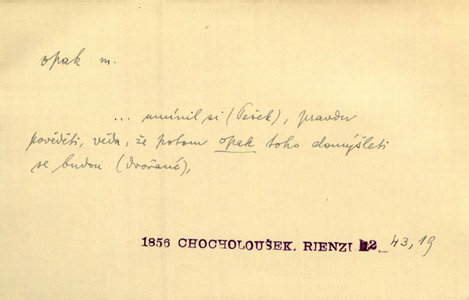 opak m.
... umínil si (Vašek), pravdu
pověděti, věda, že potom opak toho domýšleti
se budou (dvořané),
1856 CHOCHOLOUŠEK, RIENZI 2_ 43,19